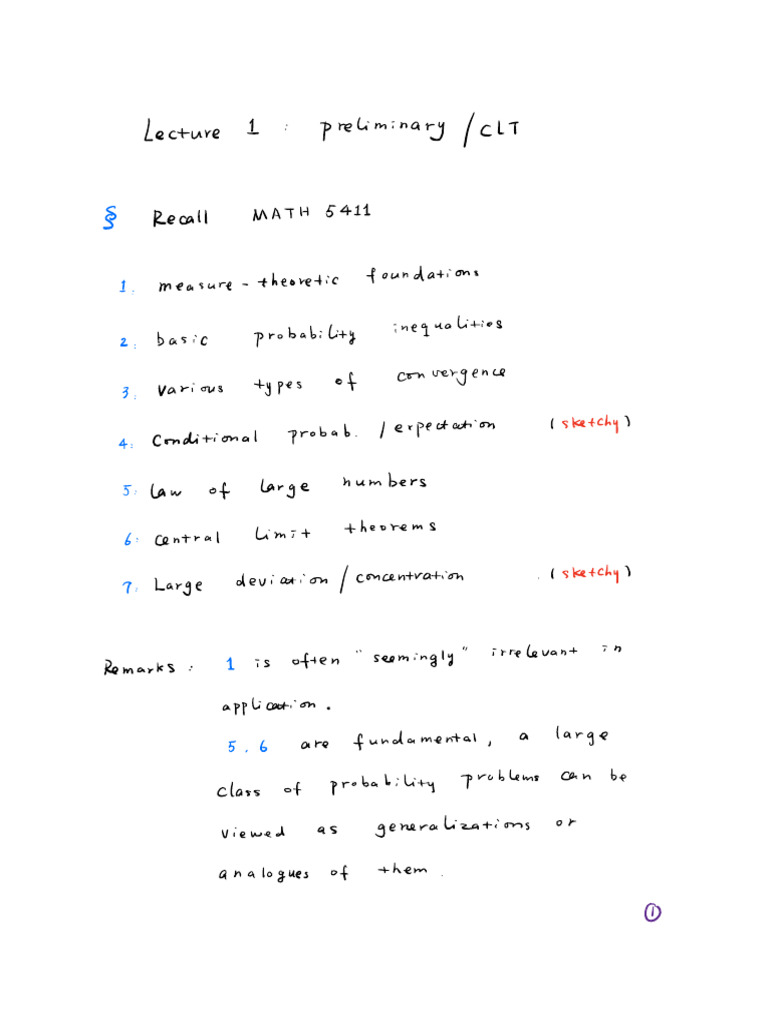 Lecture 1 : preliminary / CLT
§ Recall MATH 5411
1. measure - theoretic foundations
2. basic probability inequalities
3. various types of convergence
4. Conditional probab. / expectation (sketchy)
5. law of large numbers
6. central limit theorems
7. Large deviation / concentration . (sketchy)
Remarks : 1 is often "seemingly" irrelevant in
application.
5. 6 are fundamental, a large
class of probability problems can be
viewed as generalizations or
analogues of them.
①